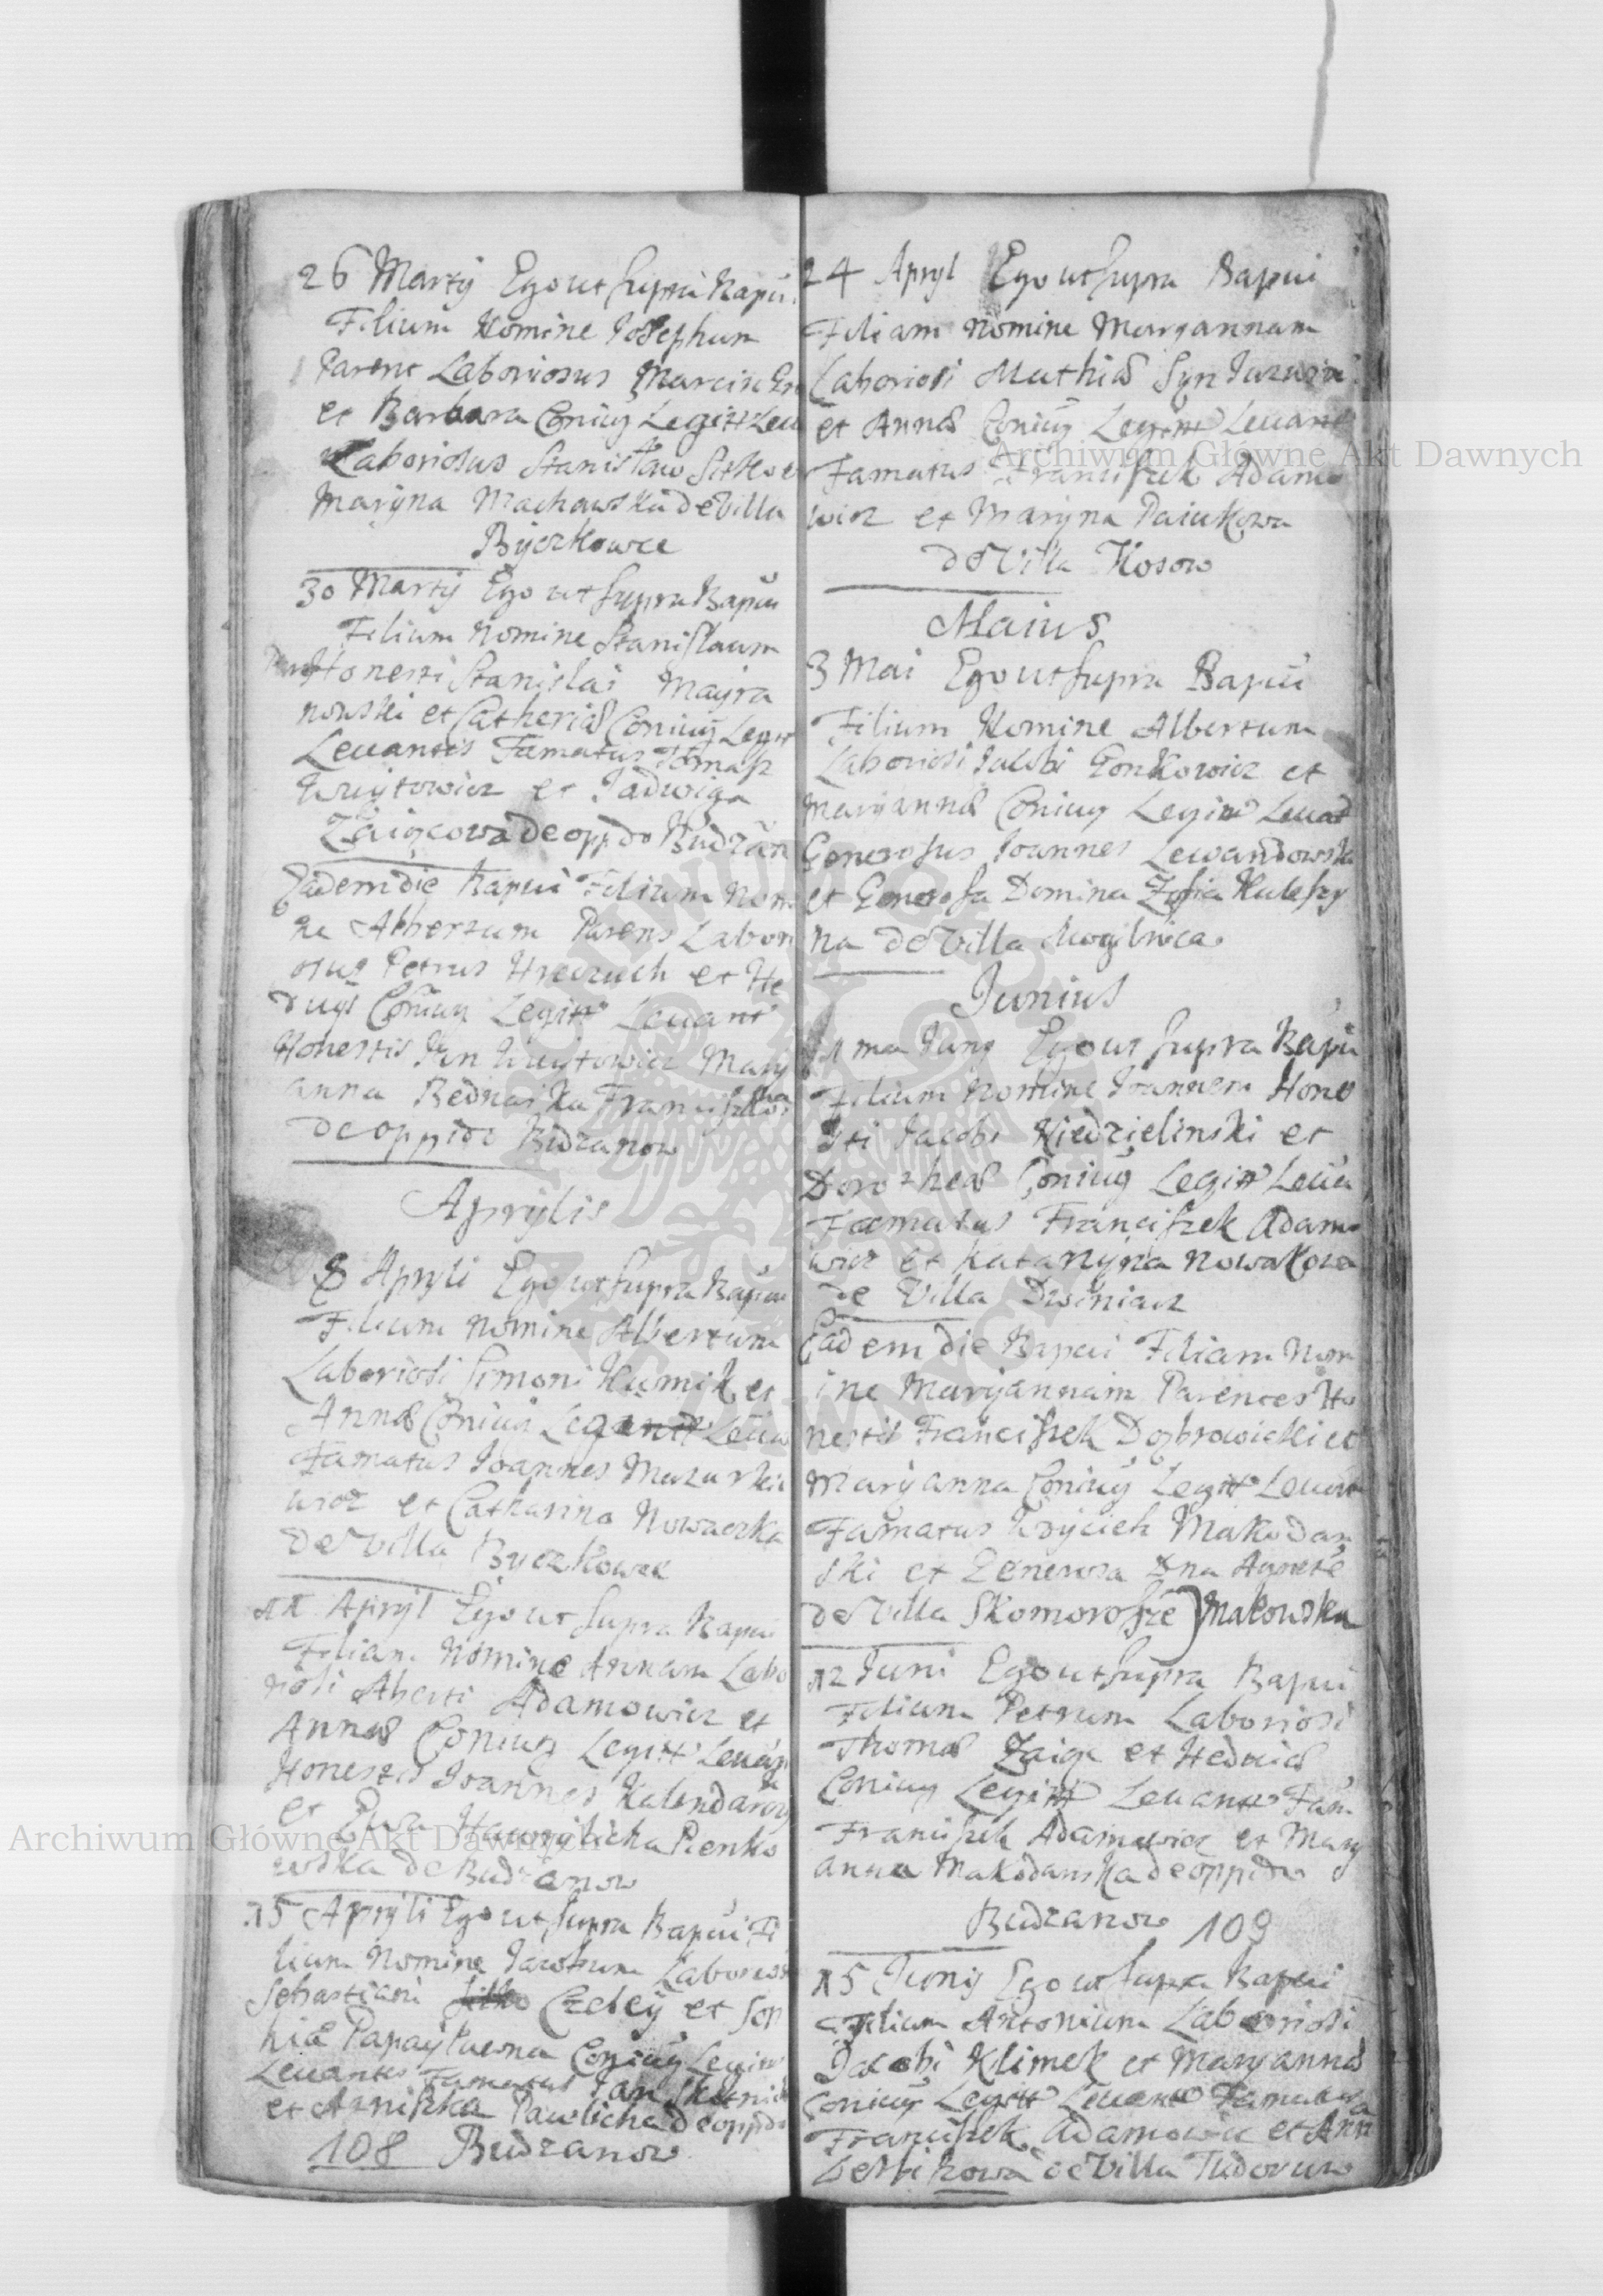 26 Martij Ego ut supra Bapti
Filium Nomine Josephum
Parent Laboriosus Marcin
et Barbara Coniug Legitt Leua
Laboriosus Stanisław Sitko et
Maryna Machowska de Villa
Byczkowce
30 Martij Ego ut supra Bapui
Filium Nomine Stanislaum
Honesti Stanislai Mayra
nowski et Catheriæ Coniug Legitt
Leuantes Famatus Tomasz
Woytowicz et Jadwiga
Zaięcowa de oppdo Budzan
Eadem die Bapui Filium Nomi
ne Albertum Parens Labori
osus Petrus Hreczuch et He
duigæ Coniug Legitt Leuant
Honestis Jan Woytowicz Mary
anna Bednarska Franciszko
de oppido Budzanow
Aprylis
8 Apryli Ego ut supra Bapui
Filium Nomine Albertum
Laboriosi Simoni Kuśmik et
Annæ Coniug Leg Leua
Famatus Joannes Mazurkie
wicz et Catharina Nowaczka
de Villa Byczkowce
11 Apryl Ego ut supra Bapui
Filiam Nomine Annam Labo
riosi Alberti Adamowicz et
Annæ Coniug Legitt Leuan
Honestis Joannes Kalendarow
et Ewa Hawrylicha Pienko
wska de Budzanow
15 Apryli Ego ut supra Bapui Fi
lium Nomine Jacobum Laborios
Sebastiani Czebey et Sop
hiæ Coniug Legitt
Leuantes Famatus Jan
et Agniszka Pawlicha de oppdo
108 Budzanow
24 Apryl Ego ut supra Bapui
Filiam Nomine Maryannam
Laboriosi Mathiæ Syn
et Annæ Coniug Legitt Leuant
Famatus Franciszek Adamo
wicz et Maryna Paiukowa
de Villa Kosow
Maius
3 Mai Ego ut supra Bapui
Filium Nomine Albertum
Laboriosi Jacobi Gonkowicz et
Maryannæ Coniug Legitt Leuat
Generosus Joannes Lewandowski
et Generosa Domina Zofia Kuleszy
na de Villa Mogilnica
Junius
1 ma Juny Ego ut supra Bapui
Filium Nomine Joannem Hone
sti Jacobi Niedzielinski et
Dorotheæ Coniug Legitt Leua
Famatus Franciszek Adamo
wicz et Katarzyna Nowakowa
de Villa Dwiniacz
Eadem die Bapui Filiam Nom
ine Maryannam Parentes Ho
nestis Franciszek Dobrowicki et
Maryanna Coniug Legitt Leuant
Famatus Woyciech Makodan
ski et Generoza Dna Agnete
de Villa Skomorosze) Makowska
12 Juni Ego ut supra Bapui
Filium Petrum Laboriosi
Thomæ Zaięc et Heduigæ
Coniug Legitt Leuantt Fam
Franciszek Adamowicz et Mary
anna Makodanska de oppido
Budzanow 109
15 Junij Ego ut supra Bapui
Filium Antonium Laboriosi
Jacobi Klimek et Maryannæ
Coniug Legitt Leuantt Famatus
Franciszek Adamowicz et Ann
de Villa Tudorow
Archiwum Główne Akt Dawnych
Archiwum Główne Akt Dawnych
ARCHIWUM GŁÓWNE AKT DAWNYCH